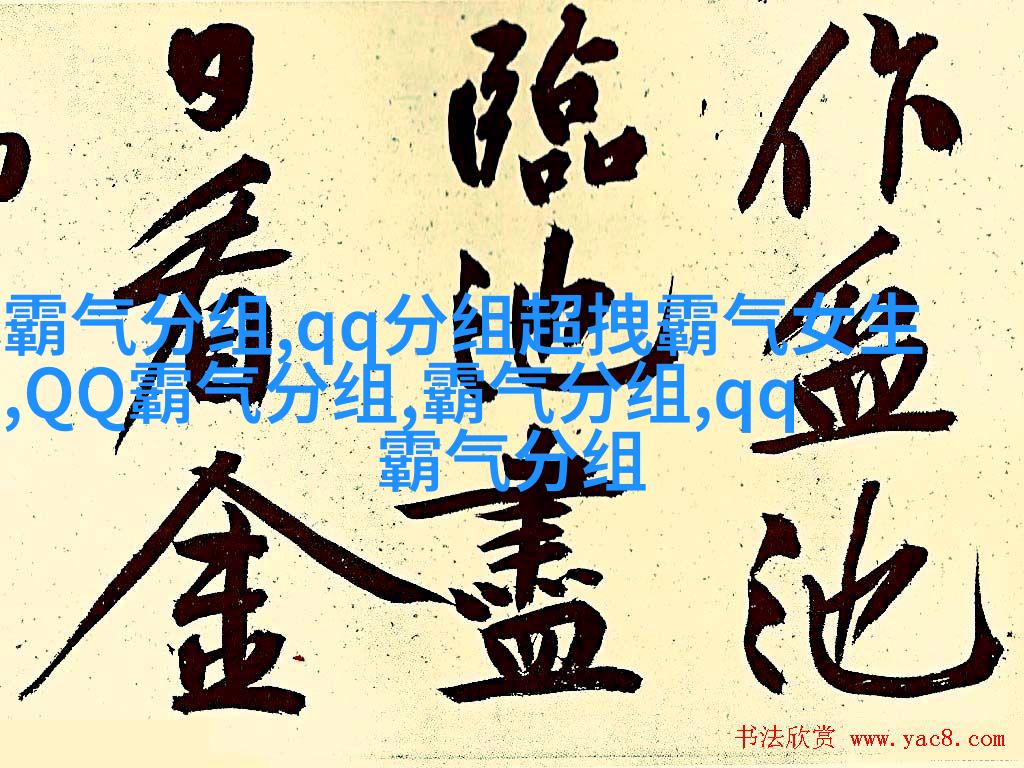 作盆池
臨池盡
日看金
霸气分组,qq分组超拽霸气女生
,QQ霸气分组,霸气分组,qq
霸气分组
书法欣赏 www.yac8.com